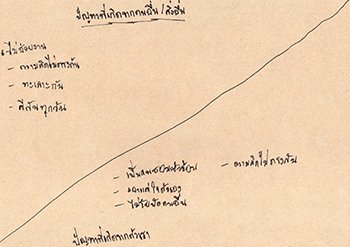 ปัญหาที่เกิดจากคนอื่น/สิ่งอื่น
ไม่ช่วยงาน
- ความคิดไม่ตรงกัน
- ทะเลาะกัน
- ตีกันทุกวัน
- ความคิดไม่ตรงกัน
- เอาแต่ใจตัวเอง
- ไม่รับฟังคนอื่น
ปัญหาที่เกิดจากตัวเรา